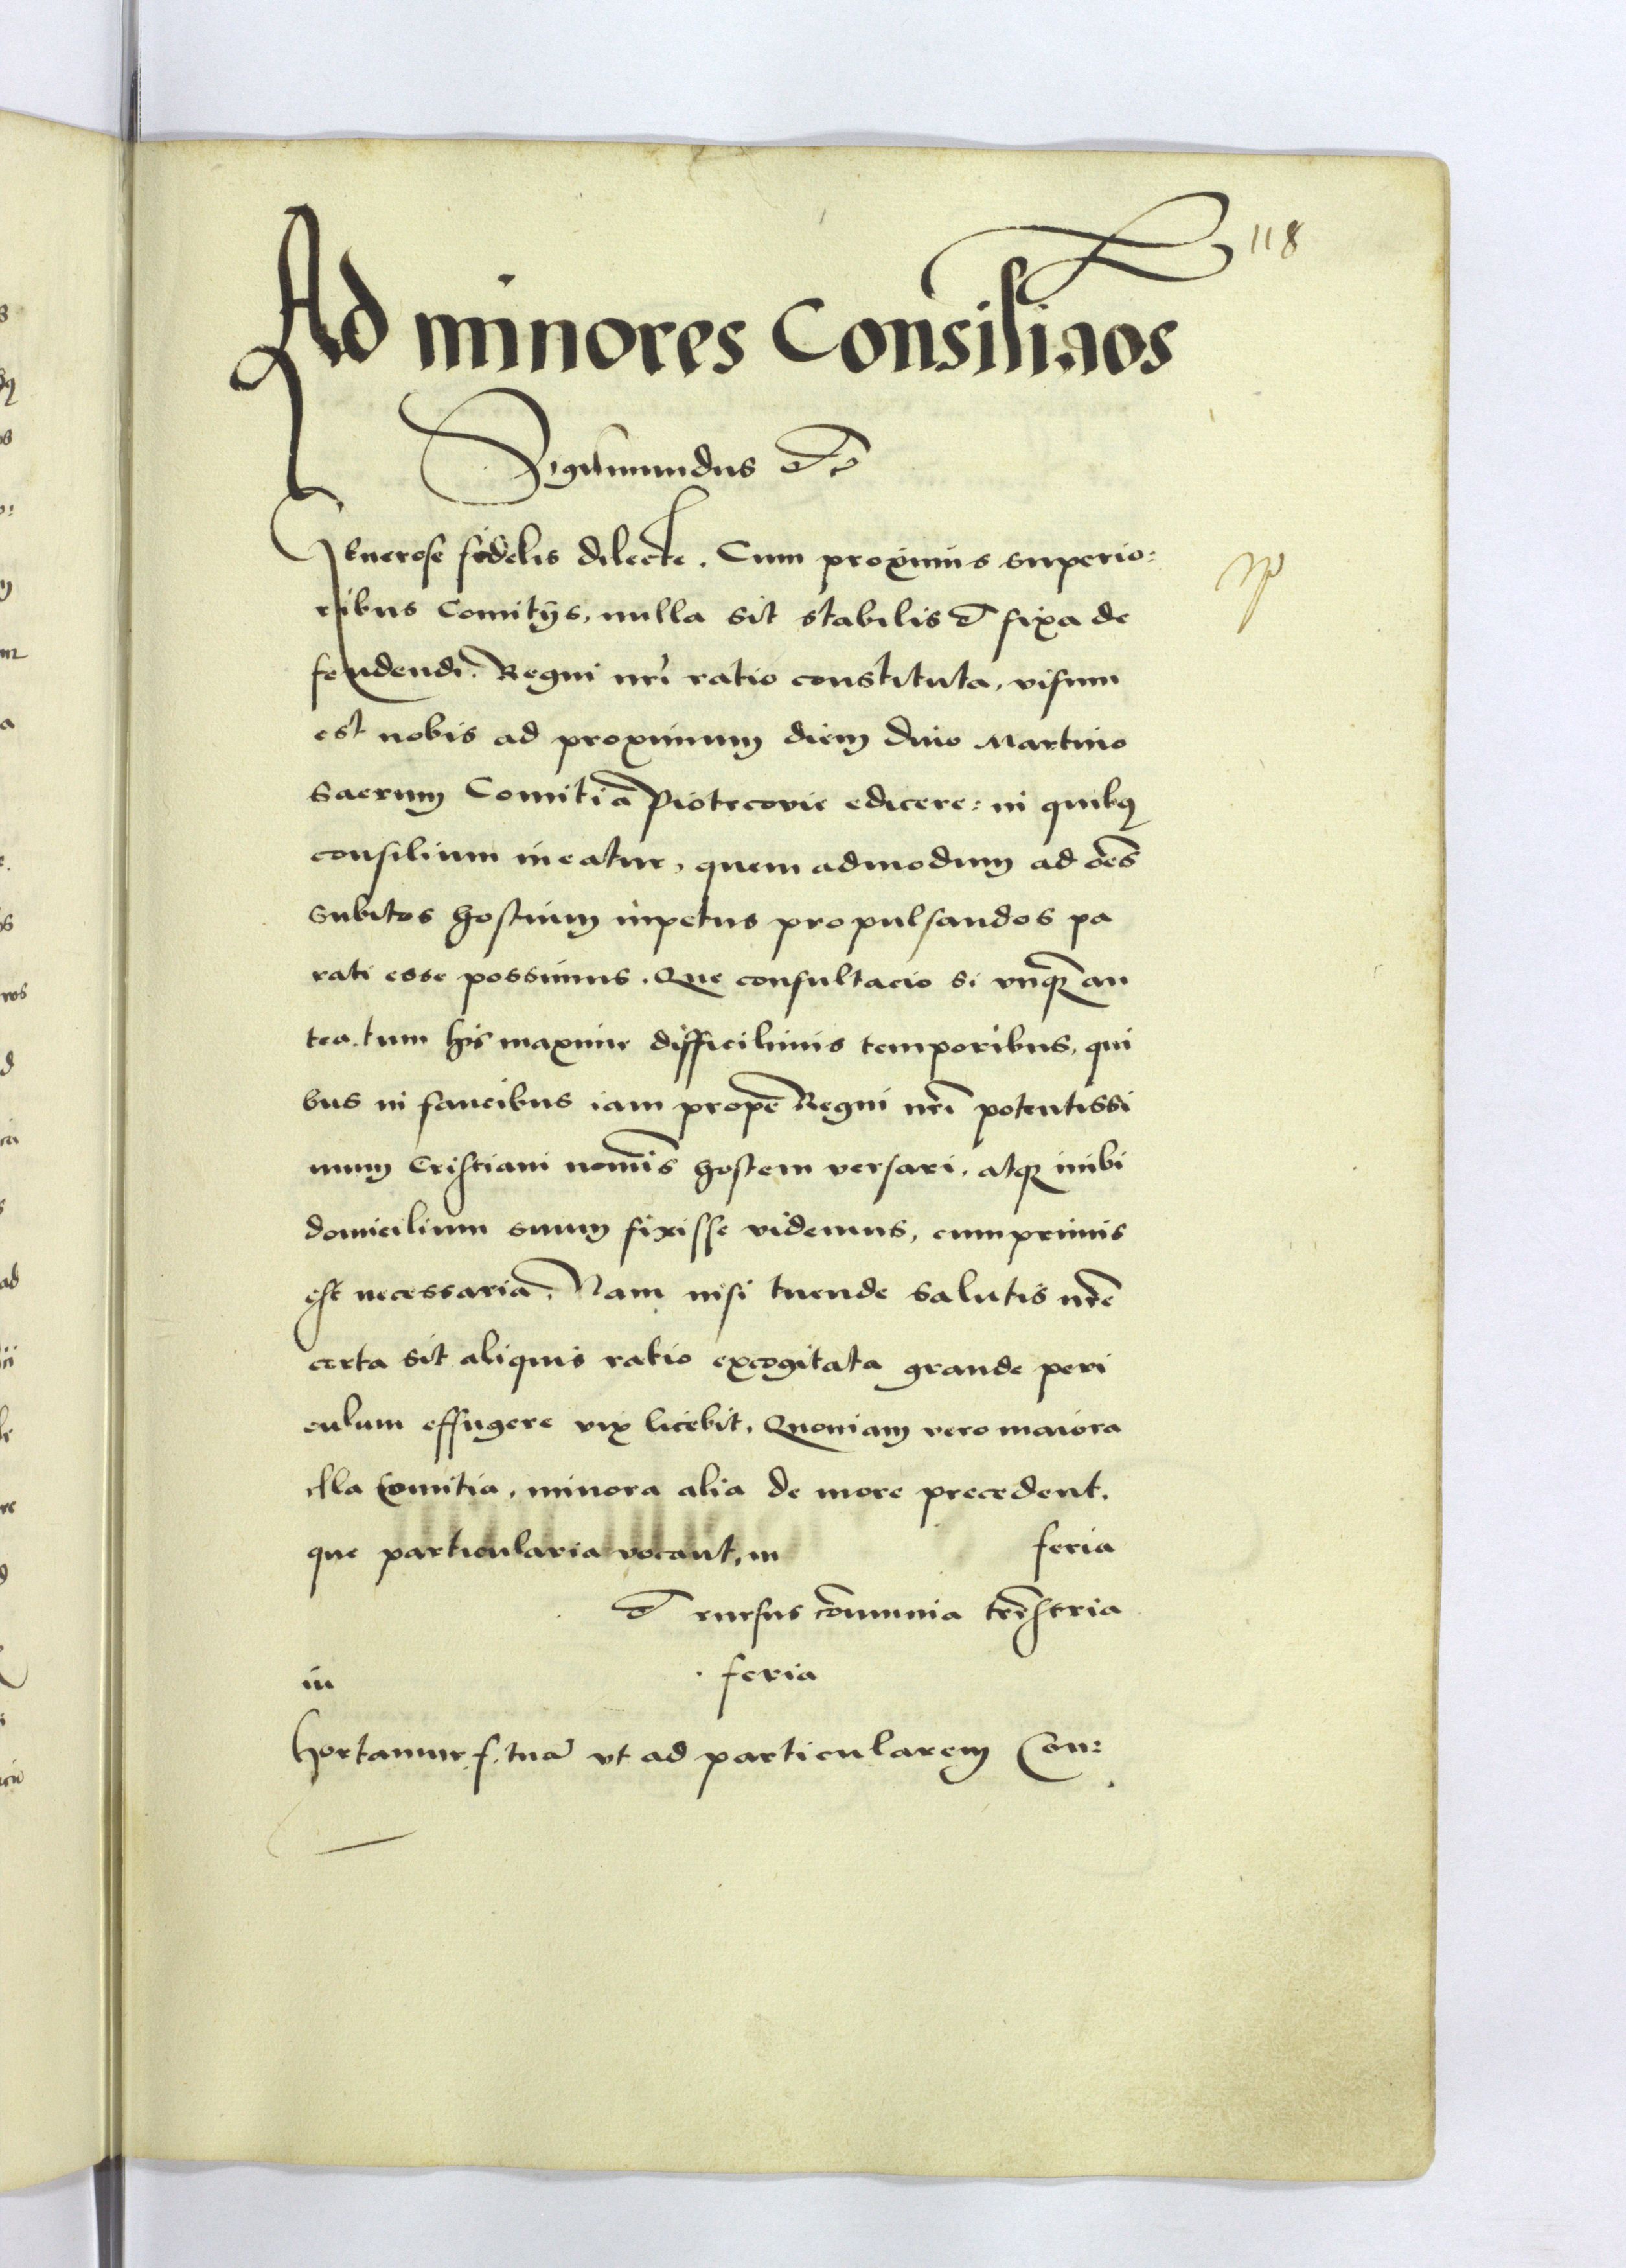 118
Ad minores Consiliaos
Sigismundus etc
Generose fidelis dilecte. Cum proximis superio:
ribus Comitijs, nulla sit stabilis et fixa de
fendendi Regni nri ratio constituta, visum
est nobis ad proximum diem diuo Martino
sacrum Comitia Piotrcovie edicere: in quibq
consilium ineatur, quem admodum ad oes
subitos hostium inpetus propulsandos pa
rati esse possimus. Que consultacio si vnqz an
tea. tum his maxime difficilimis temporibus, qui
bus in faucibus iam prope Regni nri potentissi
mum Cristiani nomis hostem versari, atqz inibi
domicilium suum fixisse videmus, cumprimis
est necessaria. Nam nisi tuende salutis nre
certa sit aliquis ratio excogitata grande peri
culum effugere vix licebit. Quoniam vero maiora
illa Comitia, minora alia de more precedent,
que particularia vocant, in feria
et rursus comunia trestria
in feria
hortamur f. tua vt ad particularem Con: